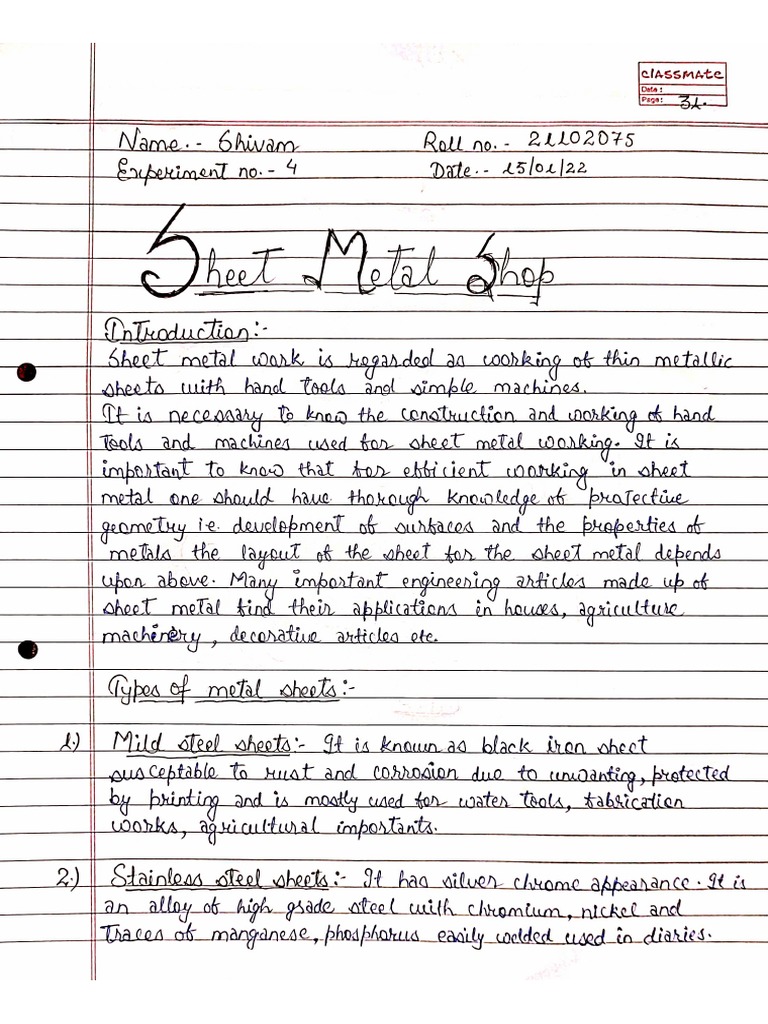 classmate
Date :
Page : 31.
Name.- Shivam Roll no.- 21102075
Experiment no.- 4 Date.- 15/01/22
Sheet Metal Shop
Introduction:-
Sheet metal work is regarded as working of thin metallic
sheets with hand tools and simple machines.
It is necessary to know the construction and working of hand
tools and machines used for sheet metal working. It is
important to know that for efficient working in sheet
metal one should have thorough knowledge of projective
geometry i.e. development of surfaces and the properties of
metals the layout of the sheet for the sheet metal depends
upon above. Many important engineering articles made up of
sheet metal find their applications in houses, agriculture
machinery, decorative articles etc.
Types of metal sheets:-
1.) Mild steel sheets:- It is known as black iron sheet
susceptable to rust and corrosion due to unwanting, protected
by printing and is mostly used for water tools, fabrication
works, agricultural importants.
2.) Stainless steel sheets:- It has silver chrome appearance. It is
an alloy of high grade steel with chromium, nickel and
traces of manganese, phosphorus easily welded used in diaries.